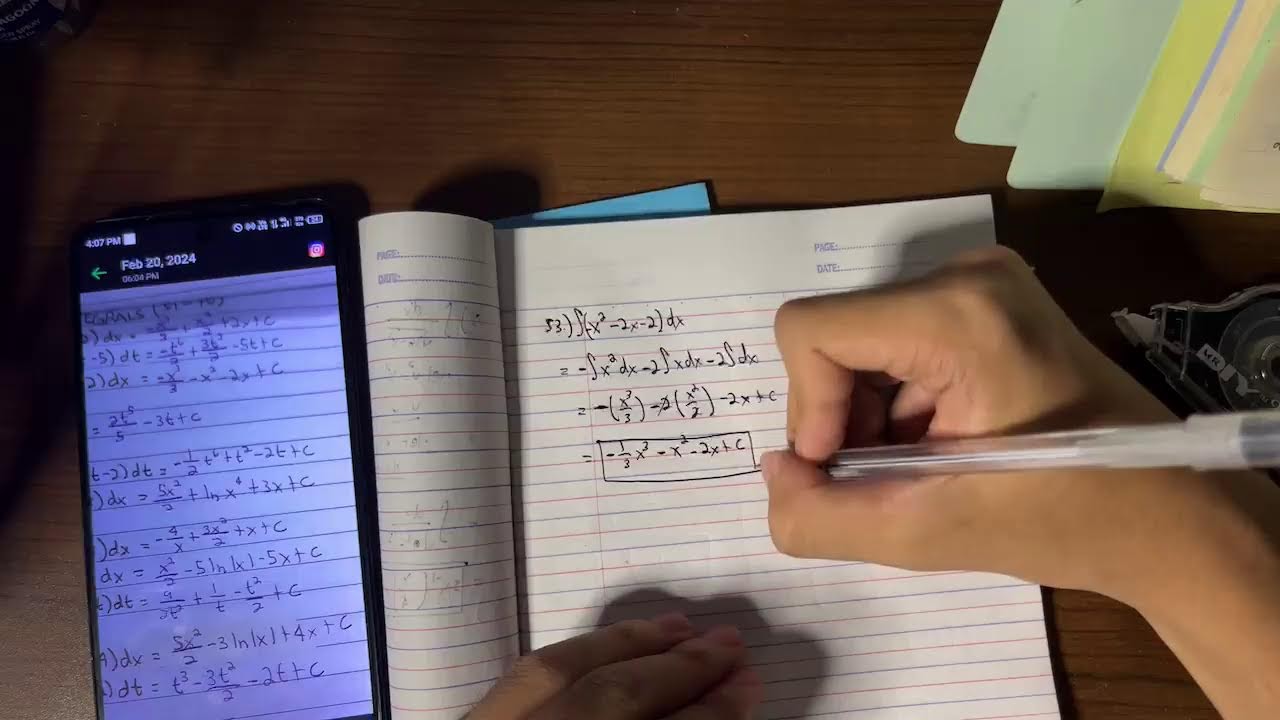 4:07 PM
Feb 20, 2024
06:04 PM
2)dx = -x³/3 - x² - 2x + C
-5)dt = -t⁶/2 + 3t²/2 - 5t + C
= 2t⁵/5 - 3t + C
t-2)dt = -1/2 t⁶ + t² - 2t + C
)dx = 5x²/2 + ln x⁴ + 3x + C
)dx = -4/x + 3x²/2 + x + C
dx = x²/2 - 5 ln|x| - 5x + C
)dx = 5x²/2 - 3 ln|x| + 4x + C
)dt = t³ - 3t²/2 - 2t + C
PAGE:
DATE:
PAGE:
DATE:
53.) ∫(-x² - 2x - 2) dx
= -∫x² dx - 2∫x dx - 2∫dx
= -(x³/3) - 2(x²/2) - 2x + C
= -1/3 x³ - x² - 2x + C